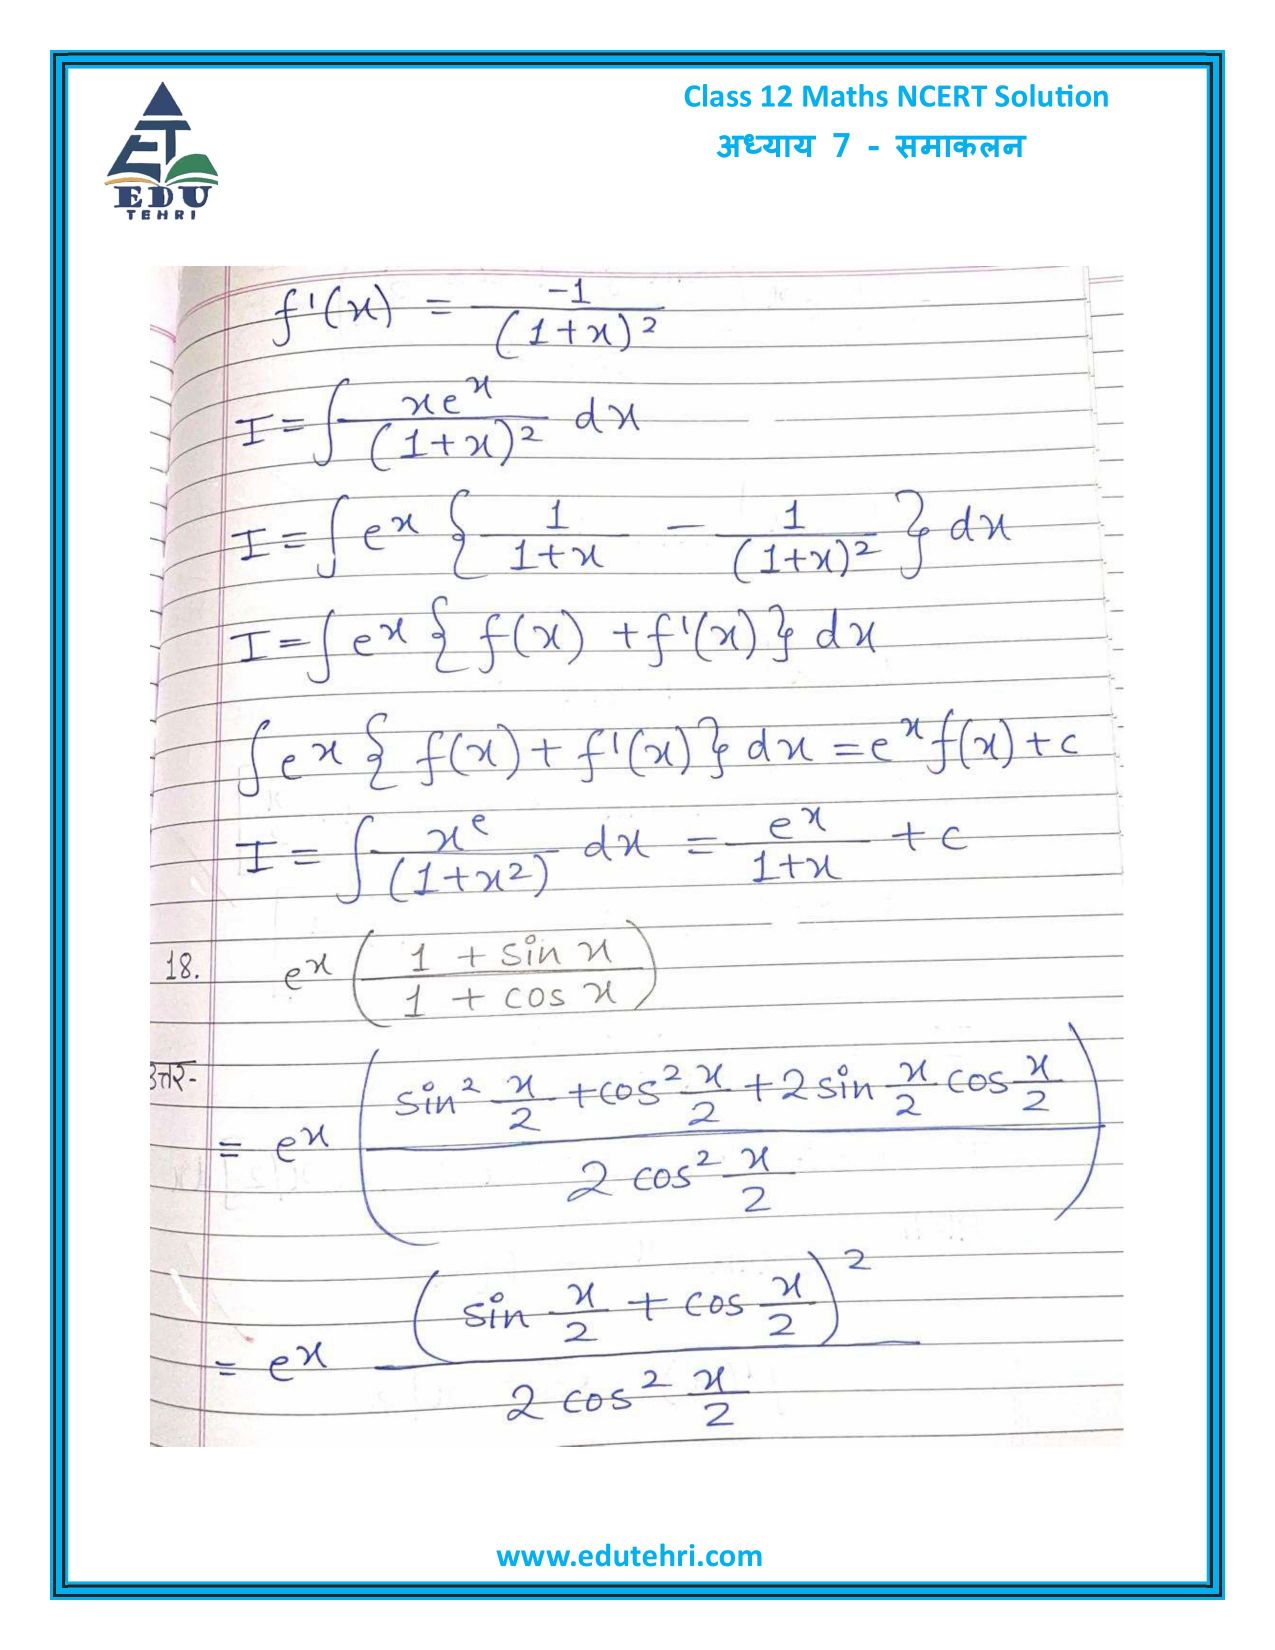 Class 12 Maths NCERT Solution
अध्याय 7 - समाकलन
ET
EDU
TEHRI
f'(x) = -1/(1+x)²
I = ∫ xeˣ/(1+x)² dx
I = ∫ eˣ { 1/(1+x) - 1/(1+x)² } dx
I = ∫ eˣ { f(x) + f'(x) } dx
∫ eˣ { f(x) + f'(x) } dx = eˣ f(x) + c
I = ∫ xᵉ/(1+x²) dx = eˣ/(1+x) + c
18. eˣ ( (1 + sin x)/(1 + cos x) )
उत्तर-
= eˣ ( (sin² x/2 + cos² x/2 + 2 sin x/2 cos x/2)/(2 cos² x/2) )
= eˣ (sin x/2 + cos x/2)²/(2 cos² x/2)
www.edutehri.com